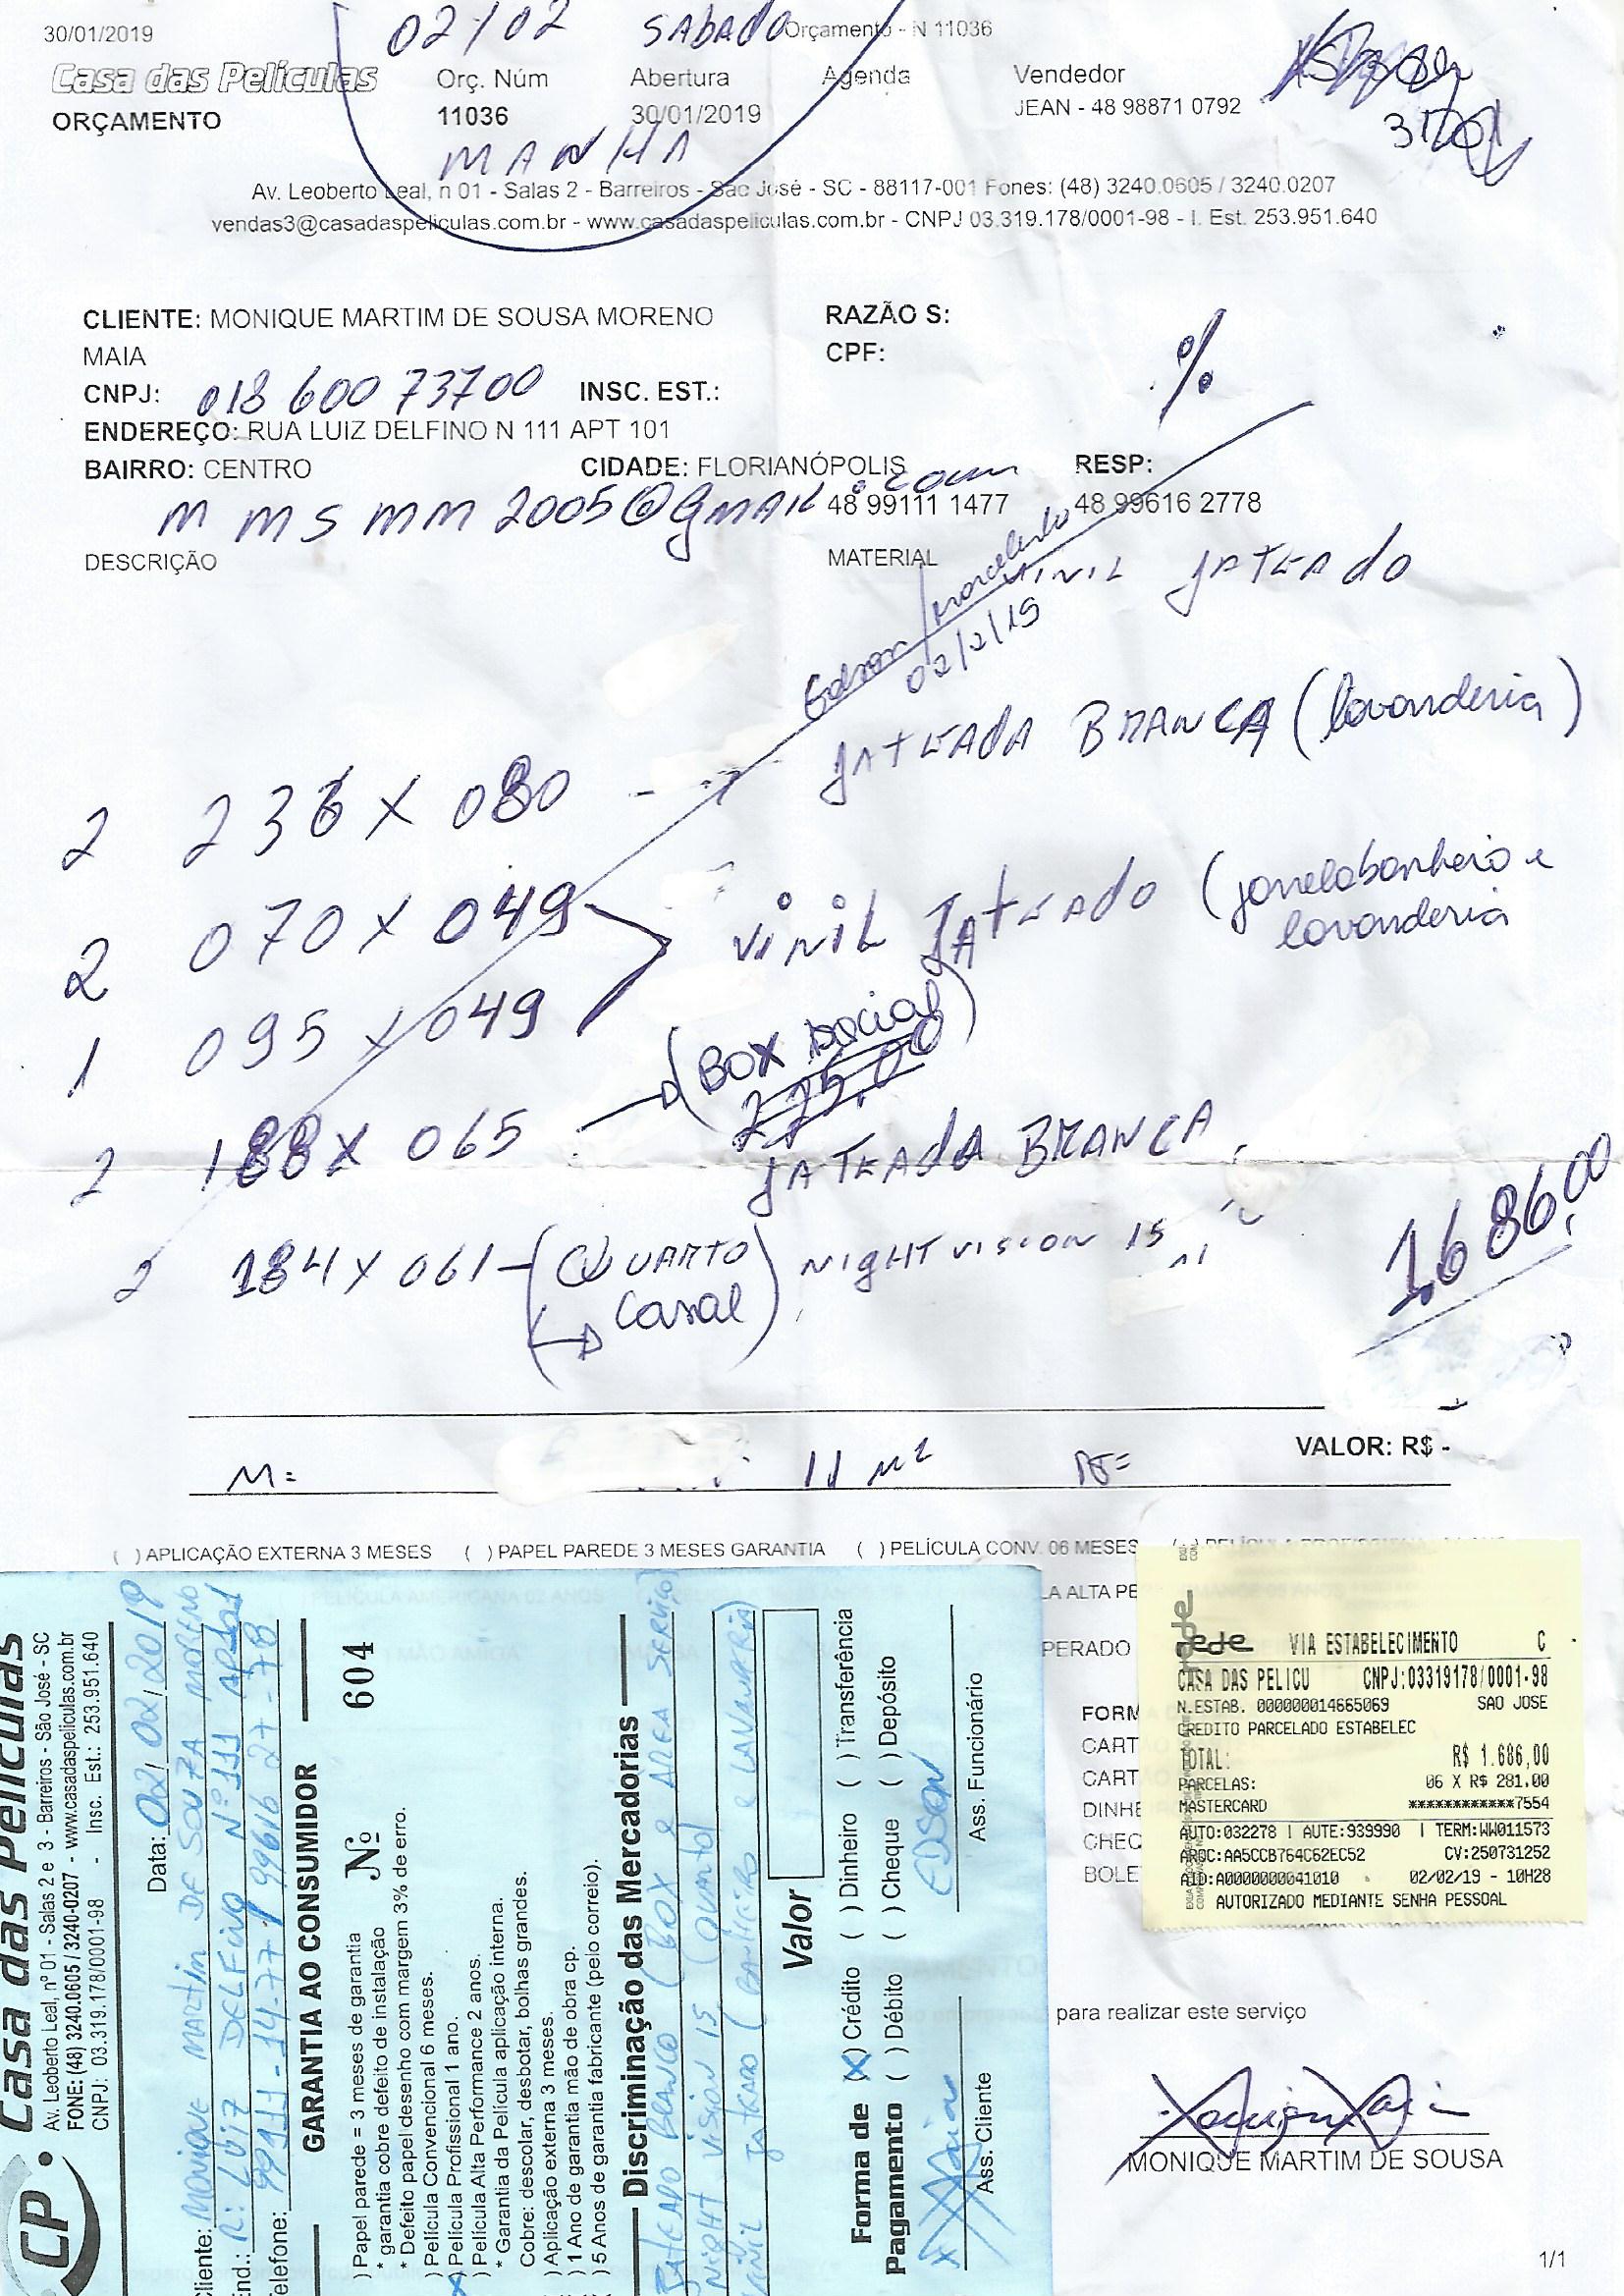 30/01/2019 02/02 SABADO Orçamento - N 11036
Casa das Películas Orç. Núm Abertura Agenda Vendedor
ORÇAMENTO 11036 30/01/2019 JEAN - 48 98871 0792
MANHA
Av. Leoberto Leal, n 01 - Salas 2 - Barreiros - Sao José - SC - 88117-001 Fones: (48) 3240.0605 / 3240.0207
vendas3@casadaspeliculas.com.br - www.casadaspeliculas.com.br - CNPJ 03.319.178/0001-98 - I. Est. 253.951.640
CLIENTE: MONIQUE MARTIM DE SOUSA MORENO RAZÃO S:
MAIA CPF: %
CNPJ: 018 600 73700 INSC. EST.:
ENDEREÇO: RUA LUIZ DELFINO N 111 APT 101
BAIRRO: CENTRO CIDADE: FLORIANÓPOLIS RESP:
mmsmm2005@gmail.com 48 99111 1477 48 99616 2778
DESCRIÇÃO MATERIAL
VINIL JATEADO
02/2/19
JATEADA BRANCA (lavanderia)
2 236 X 080
2 070 X 049 VINIL JATEADO (janela banheiro e
lavanderia
1 095 X 049
(BOX social)
225,00
2 188 X 065 JATEADA BRANCA
2 184 X 061 - (QUARTO NIGHT VISION 15
Casal)
1.686,00
VALOR: R$ -
M= 11 m²
( ) APLICAÇÃO EXTERNA 3 MESES ( ) PAPEL PAREDE 3 MESES GARANTIA ( ) PELÍCULA CONV. 06 MESES
LA ALTA PE
PERADO
FORM
CART
CART
DINHE
CHEC
BOLE
rede VIA ESTABELECIMENTO C
CASA DAS PELICU CNPJ:03319178/0001-98
N.ESTAB. 000000014665069 SAO JOSE
CREDITO PARCELADO ESTABELEC
TOTAL: R$ 1.686,00
PARCELAS: 06 X R$ 281.00
MASTERCARD ************7554
AUTO:032278 | AUTE:939990 | TERM:WW011573
ARQC:AA5CCB764C62EC52 CV:250731252
AID:A0000000041010 02/02/19 - 10H28
AUTORIZADO MEDIANTE SENHA PESSOAL
para realizar este serviço
MONIQUE MARTIM DE SOUSA
1/1
CP. Casa das Películas
Av. Leoberto Leal, nº 01 - Salas 2 e 3 - Barreiros - São José - SC
FONE: (48) 3240.0605 / 3240-0207 - www.casadaspeliculas.com.br
CNPJ: 03.319.178/0001-98 - Insc. Est.: 253.951.640
Data: 02/02/2019
Cliente: MONIQUE MARTIN DE SOUZA MORENO
End.: R: LUIZ DELFINO Nº 111 AP 101
Telefone: 99111-1477 / 99616 27-78
GARANTIA AO CONSUMIDOR Nº 604
) Papel parede = 3 meses de garantia
* garantia cobre defeito de instalação
* Defeito papel desenho com margem 3% de erro.
) Película Convencional 6 meses.
) Película Profissional 1 ano.
) Película Alta Performance 2 anos.
* Garantia da Película aplicação interna.
Cobre: descolar, desbotar, bolhas grandes.
) Aplicação externa 3 meses.
) 1 Ano de garantia mão de obra cp.
) 5 Anos de garantia fabricante (pelo correio).
Discriminação das Mercadorias
JATEADO BRANCO (BOX e AREA SERVIÇO)
NIGHT VISION 15 (QUARTO)
VINIL JATEADO (BANHEIRO e LAVANDERIA)
Valor
Forma de (X) Crédito ( ) Dinheiro ( ) Transferência
Pagamento ( ) Débito ( ) Cheque ( ) Depósito
EDSON
Ass. Cliente Ass. Funcionário